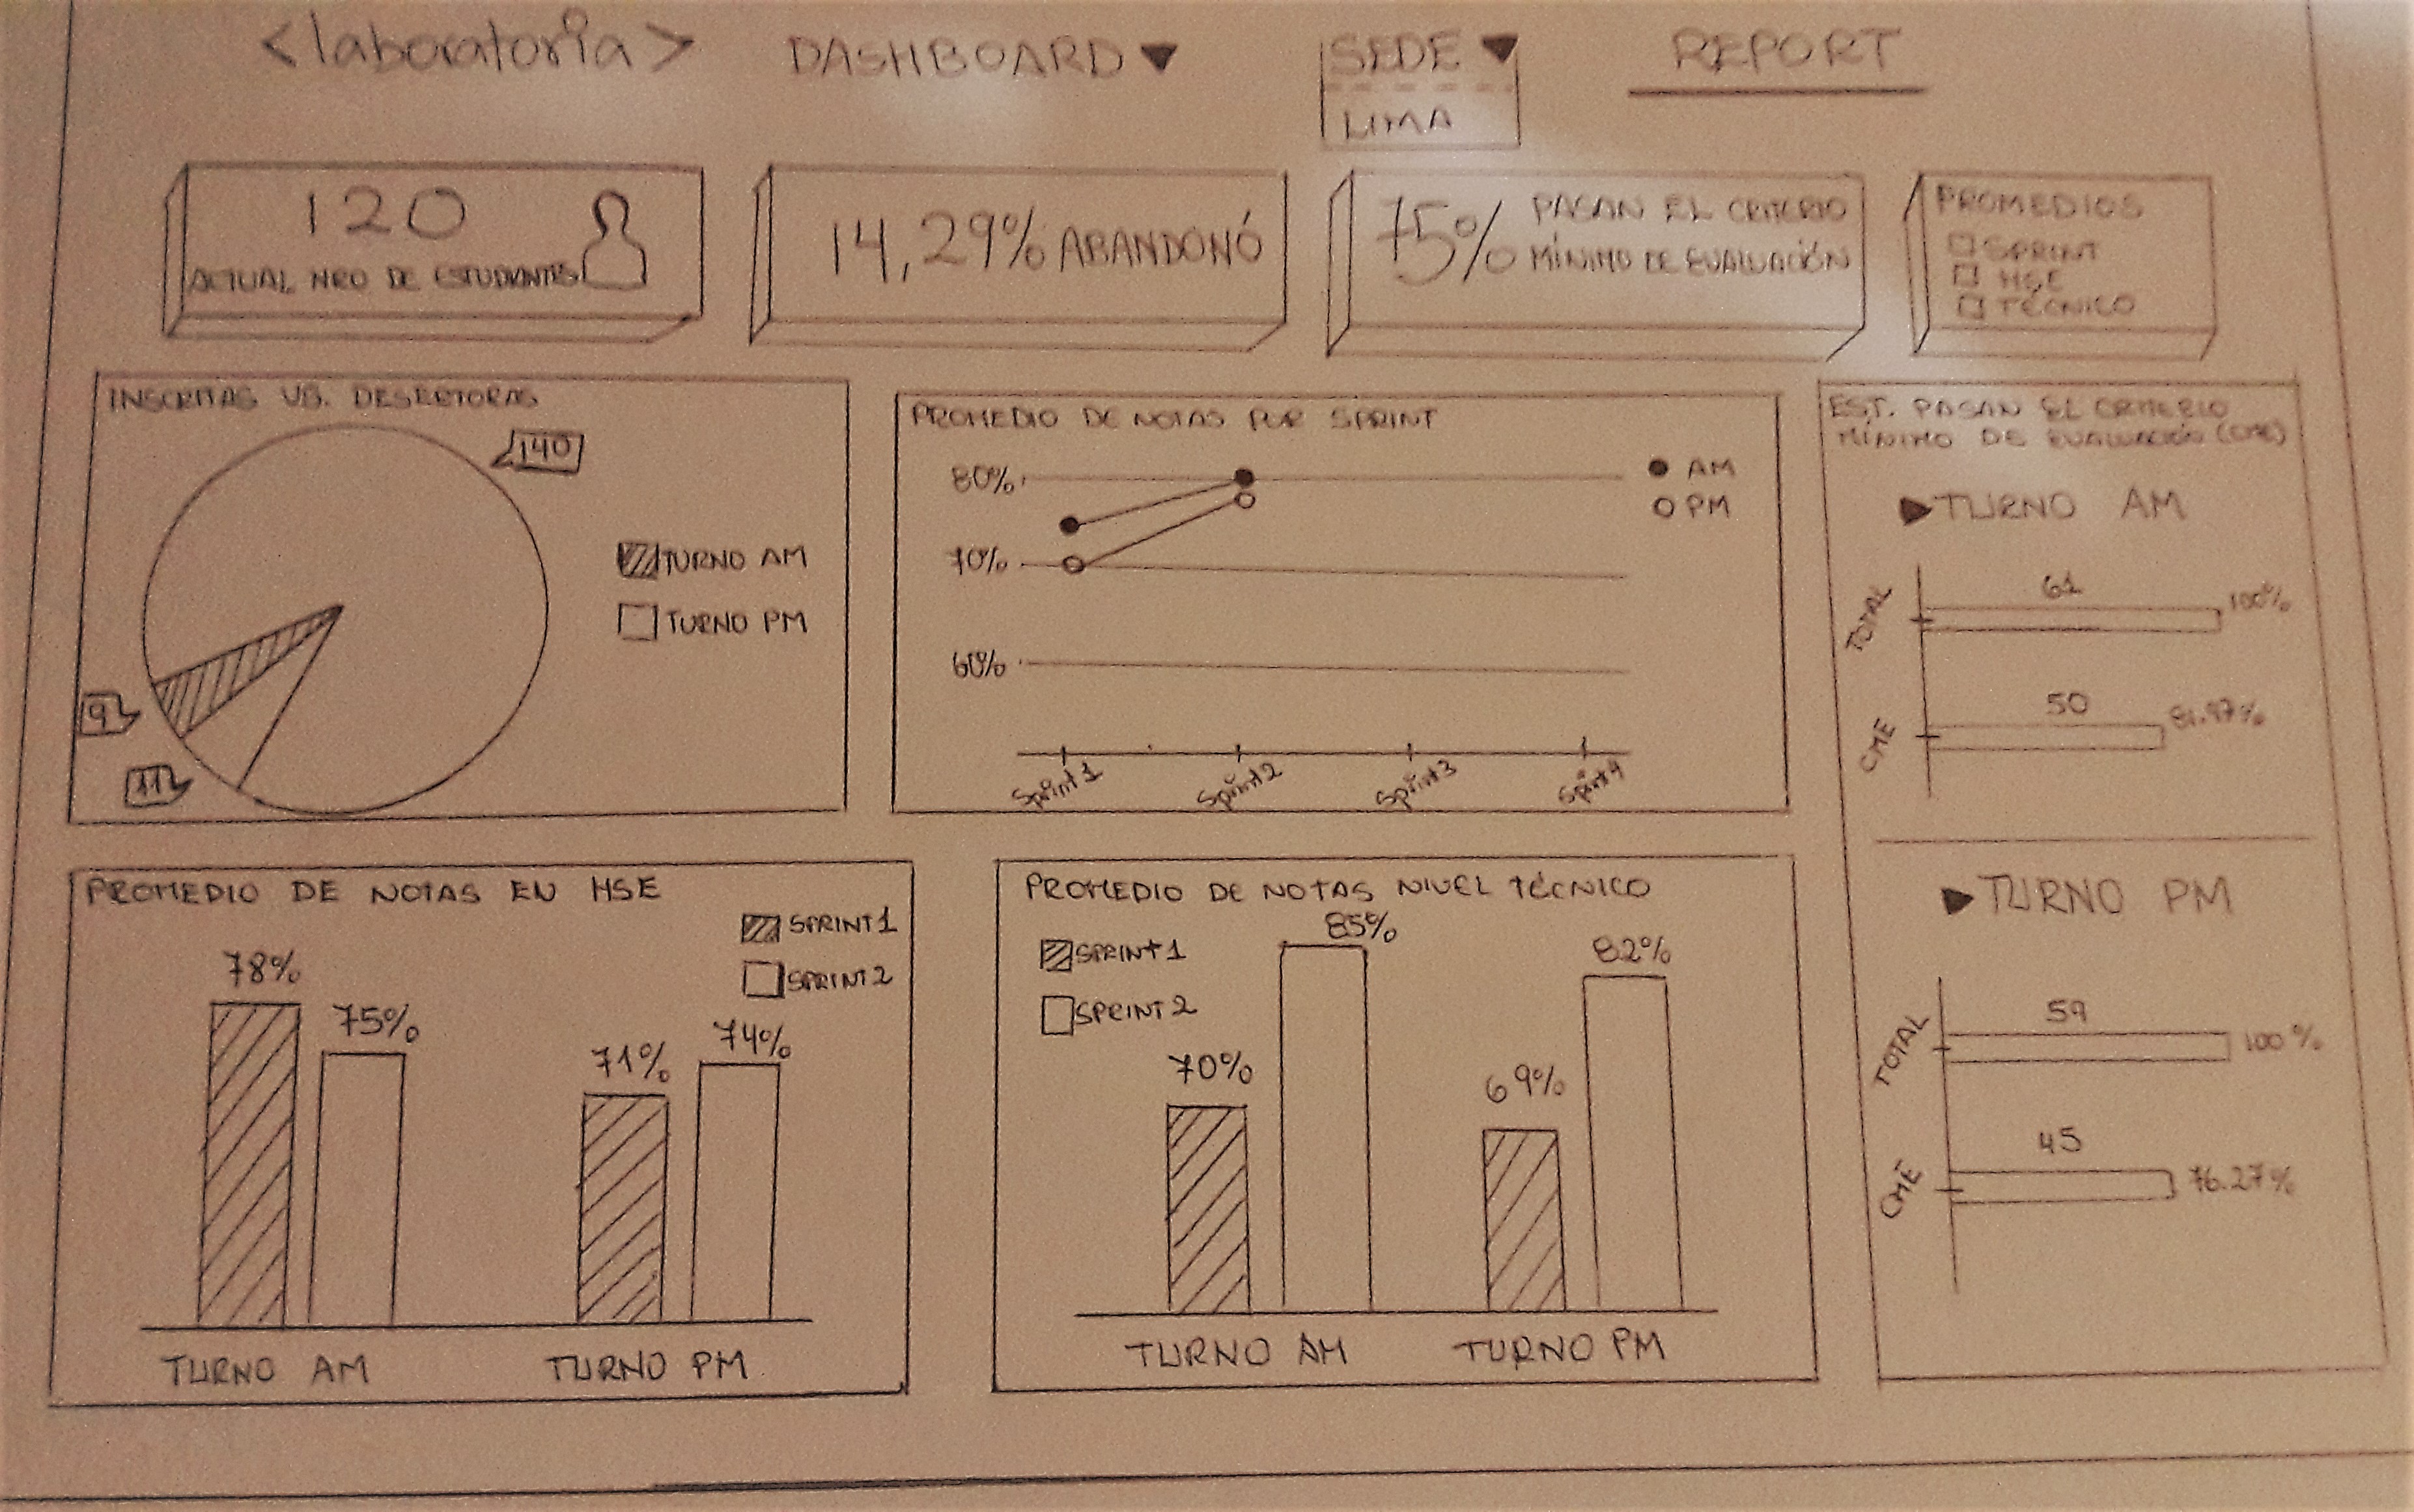 <laboratoria>
DASHBOARD ▼
SEDE ▼
LIMA
REPORT
120
ACTUAL NRO DE ESTUDIANTES
14,29% ABANDONÓ
75% PASAN EL CRITERIO
MÍNIMO DE EVALUACIÓN
PROMEDIOS
SPRINT
HSE
TÉCNICO
INSCRITAS VS. DESERTORAS
140
TURNO AM
TURNO PM
9
11
PROMEDIO DE NOTAS POR SPRINT
80%
70%
60%
AM
PM
Sprint1
Sprint2
Sprint3
Sprint4
EST. PASAN EL CRITERIO
MÍNIMO DE EVALUACIÓN (CME)
TURNO AM
TOTAL
61
100%
CME
50
81.97%
TURNO PM
TOTAL
59
100%
CME
45
76.27%
PROMEDIO DE NOTAS EN HSE
SPRINT1
SPRINT2
78%
75%
71%
74%
TURNO AM
TURNO PM
PROMEDIO DE NOTAS NIVEL TÉCNICO
SPRINT1
SPRINT2
70%
85%
69%
82%
TURNO AM
TURNO PM